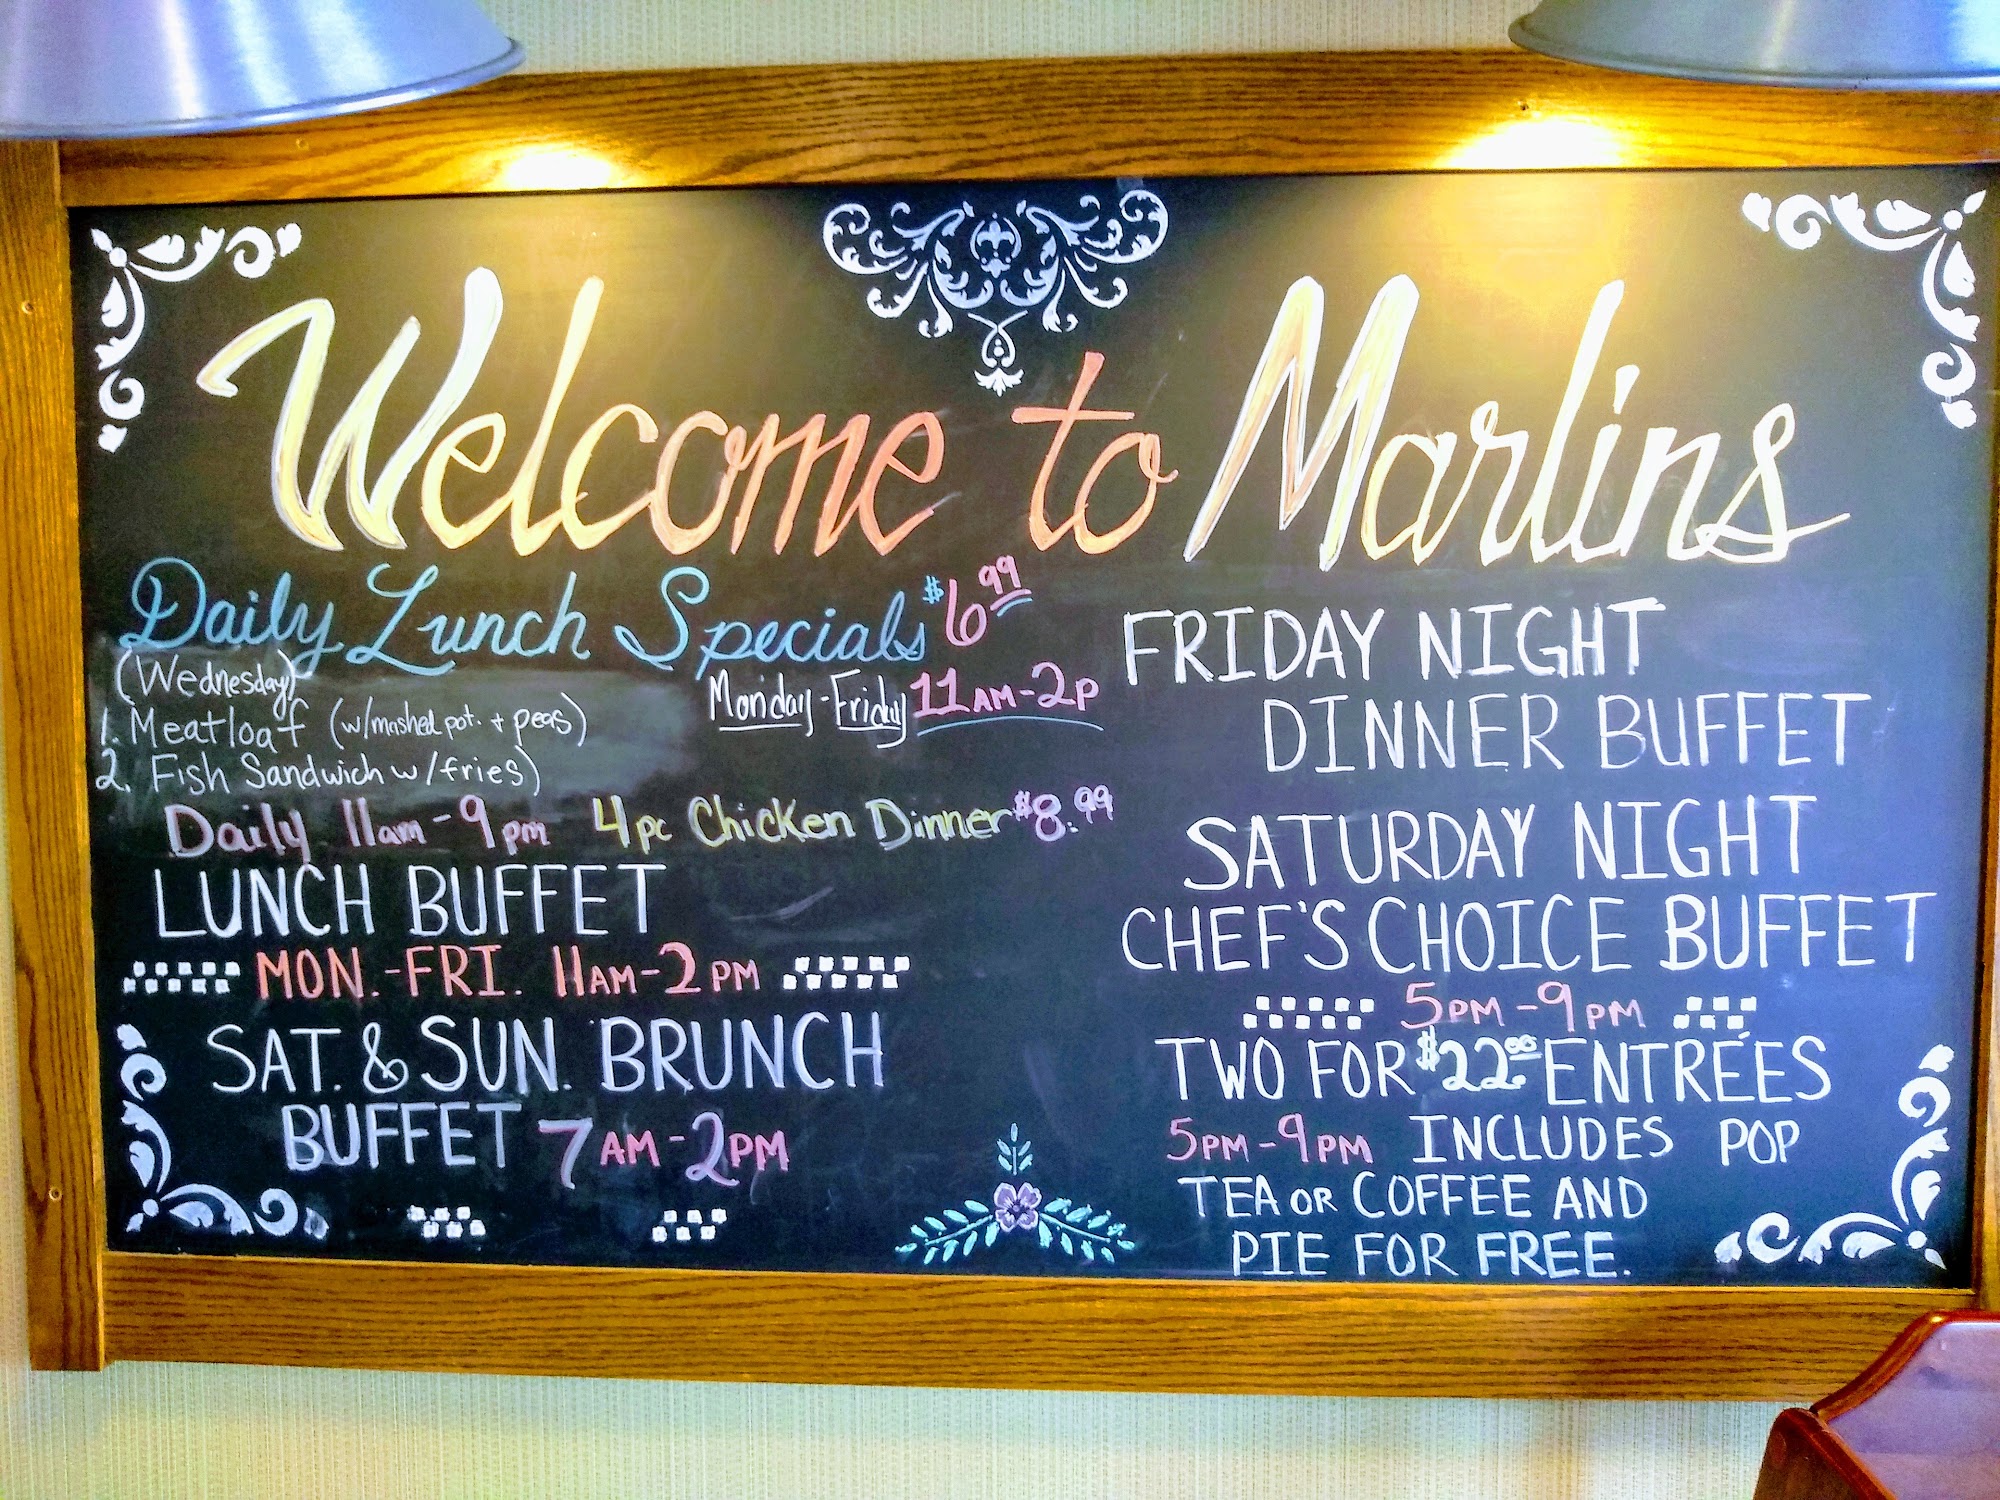 Welcome to Marlins
Daily Lunch Specials $6.99
(Wednesday)
Monday-Friday 11AM-2P
1. Meatloaf (w/mashed pot. + peas)
2. Fish Sandwich w/fries)
Daily 11am-9pm 4pc Chicken Dinner $8.99
LUNCH BUFFET
MON.-FRI. 11AM-2PM
SAT. & SUN. BRUNCH
BUFFET 7AM-2PM
FRIDAY NIGHT
DINNER BUFFET
SATURDAY NIGHT
CHEF'S CHOICE BUFFET
5PM-9PM
TWO FOR $22.00 ENTRÉES
5PM-9PM INCLUDES POP
TEA OR COFFEE AND
PIE FOR FREE.